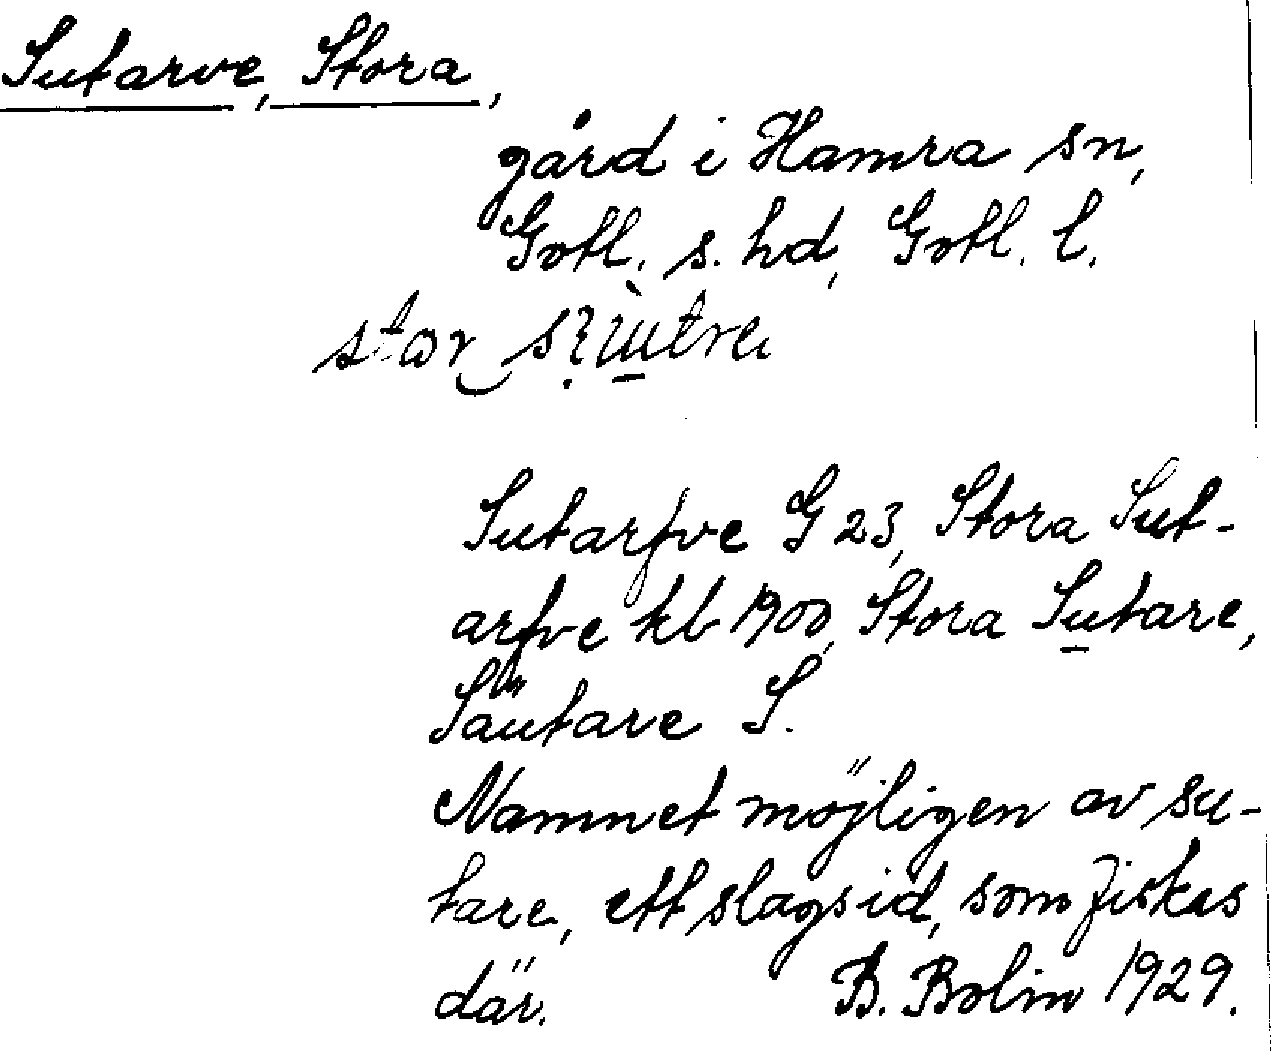 Sutarve, Stora,
gård i Hamra sn,
Gotl. s. hd, Gotl. l.
star
Sutarfve G 23, Stora Sut-
arfve kb 1900, Stora Sutare,
Säutare S.
Namnet möjligen av su-
tare, ett slags id, som fiskas
där. B. Bolin 1929.